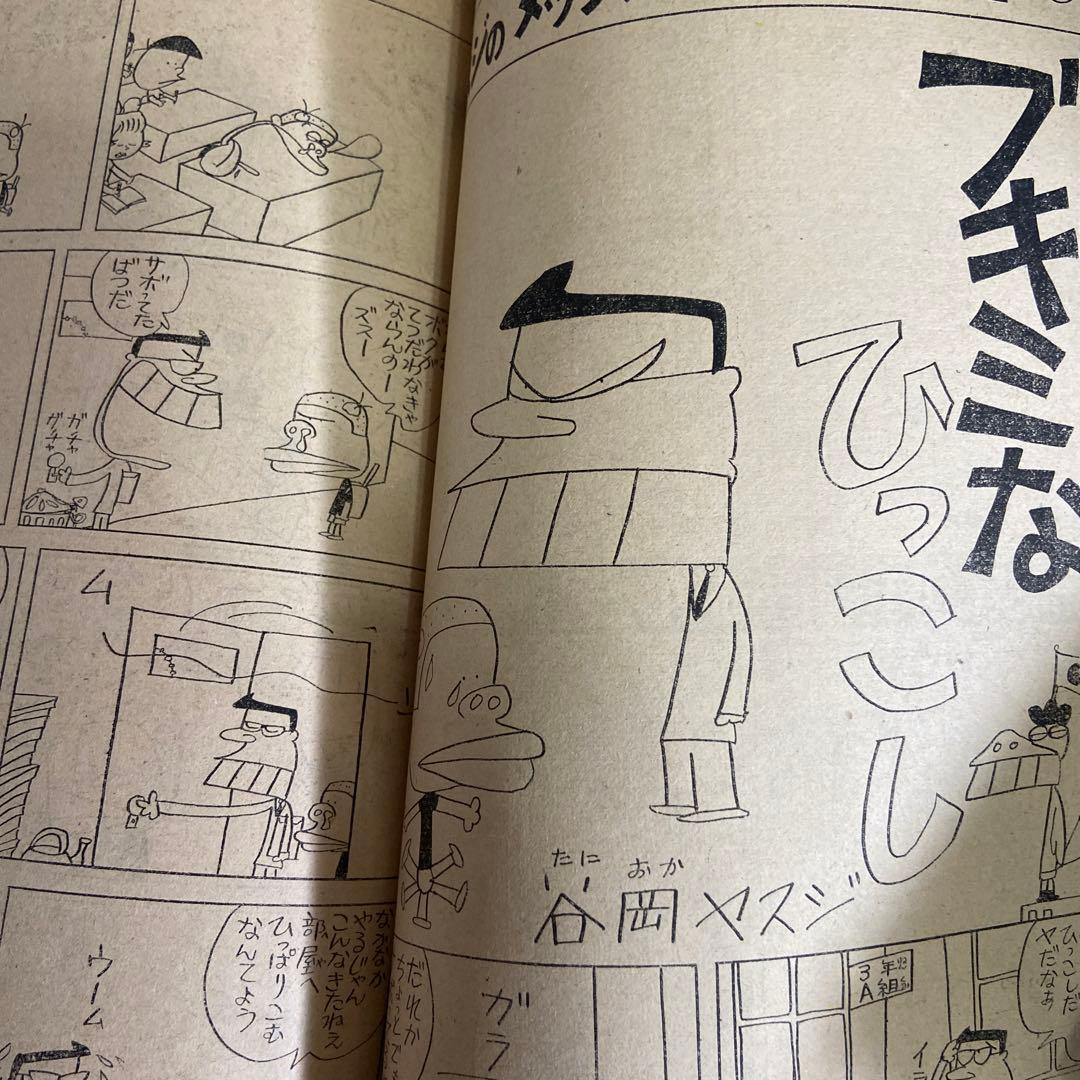 ブキミな
ひっこし
たに おか
谷岡ヤスジ
ひっこしだ
ヤだなあ
3年
A組
ガラ
だれか
サボってた
ばつだ
てつだわなきゃ
ならんのー
ズズー
ガチャ
グッチャ
ム
なかなか
やるじゃん
こんなきたねえ
部屋へ
ひっぱりこむ
なんてよう
ウーム